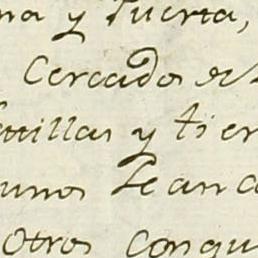 na y Puerta,
Cercado de
tillas y tier
unos sean
Otros conqu